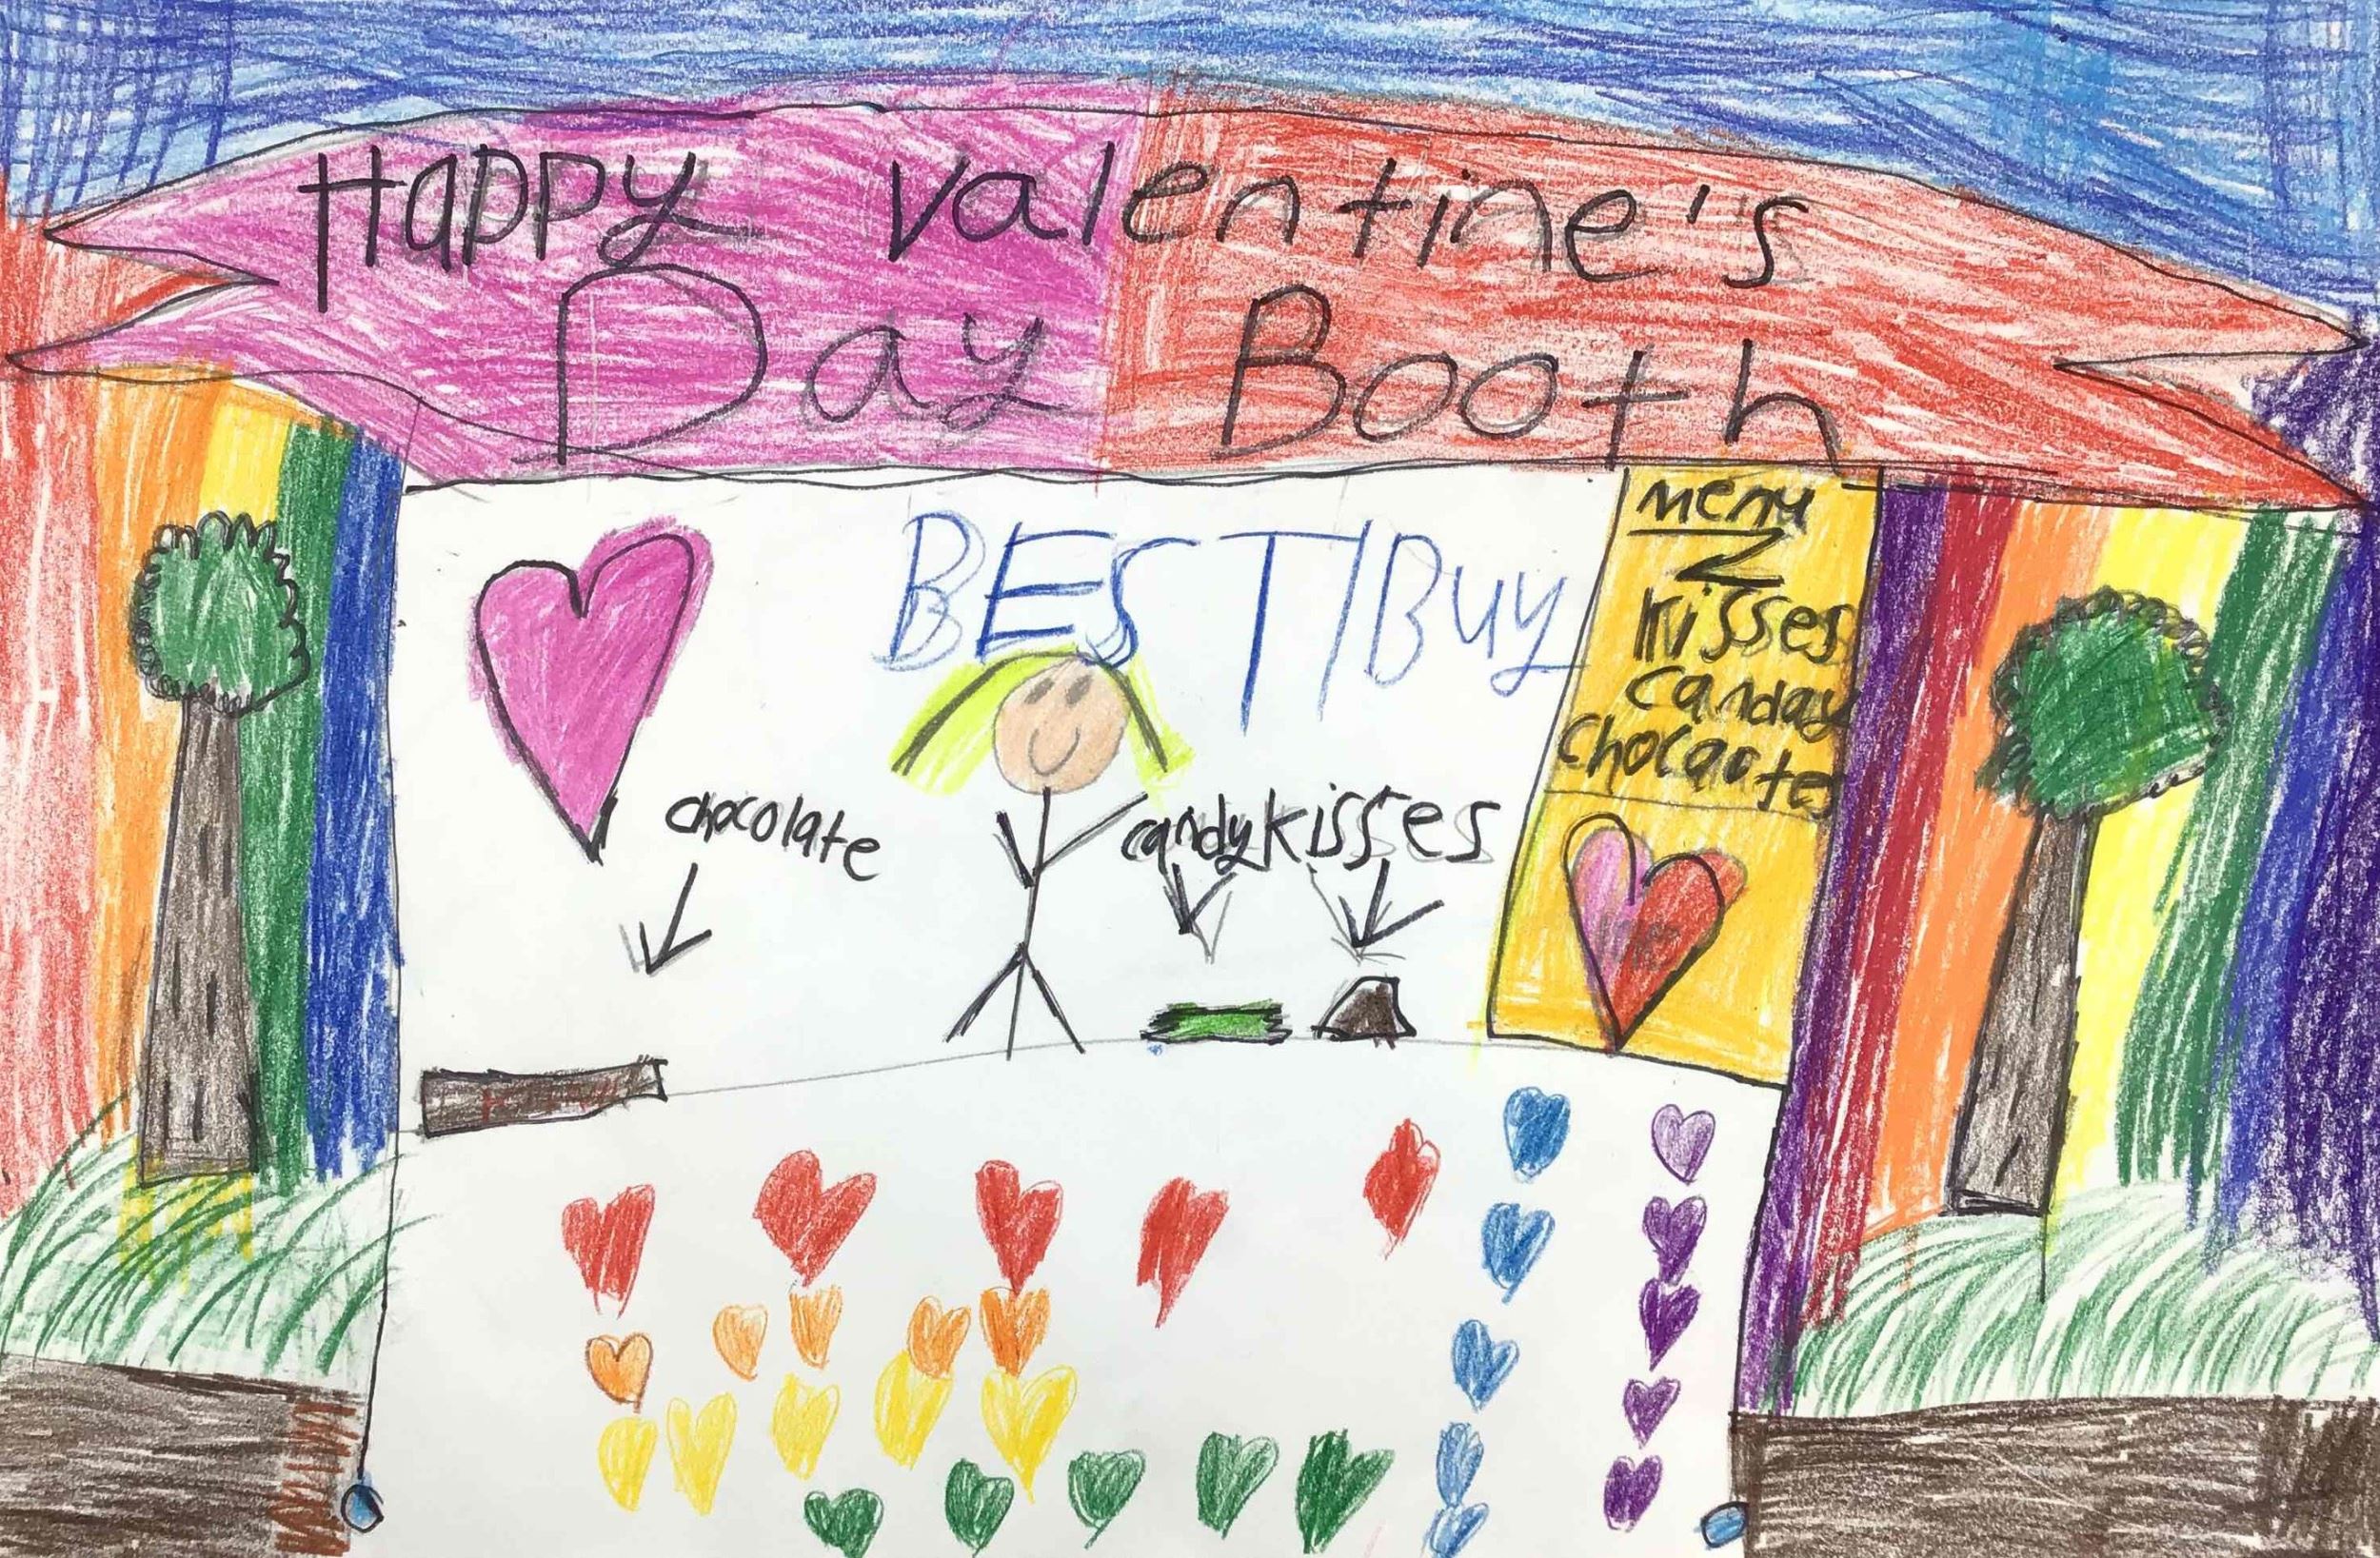 Happy Valentine's
Day Booth
BEST Buy
menu
kisses
canday
chocaotes
chocolate
candy kisses